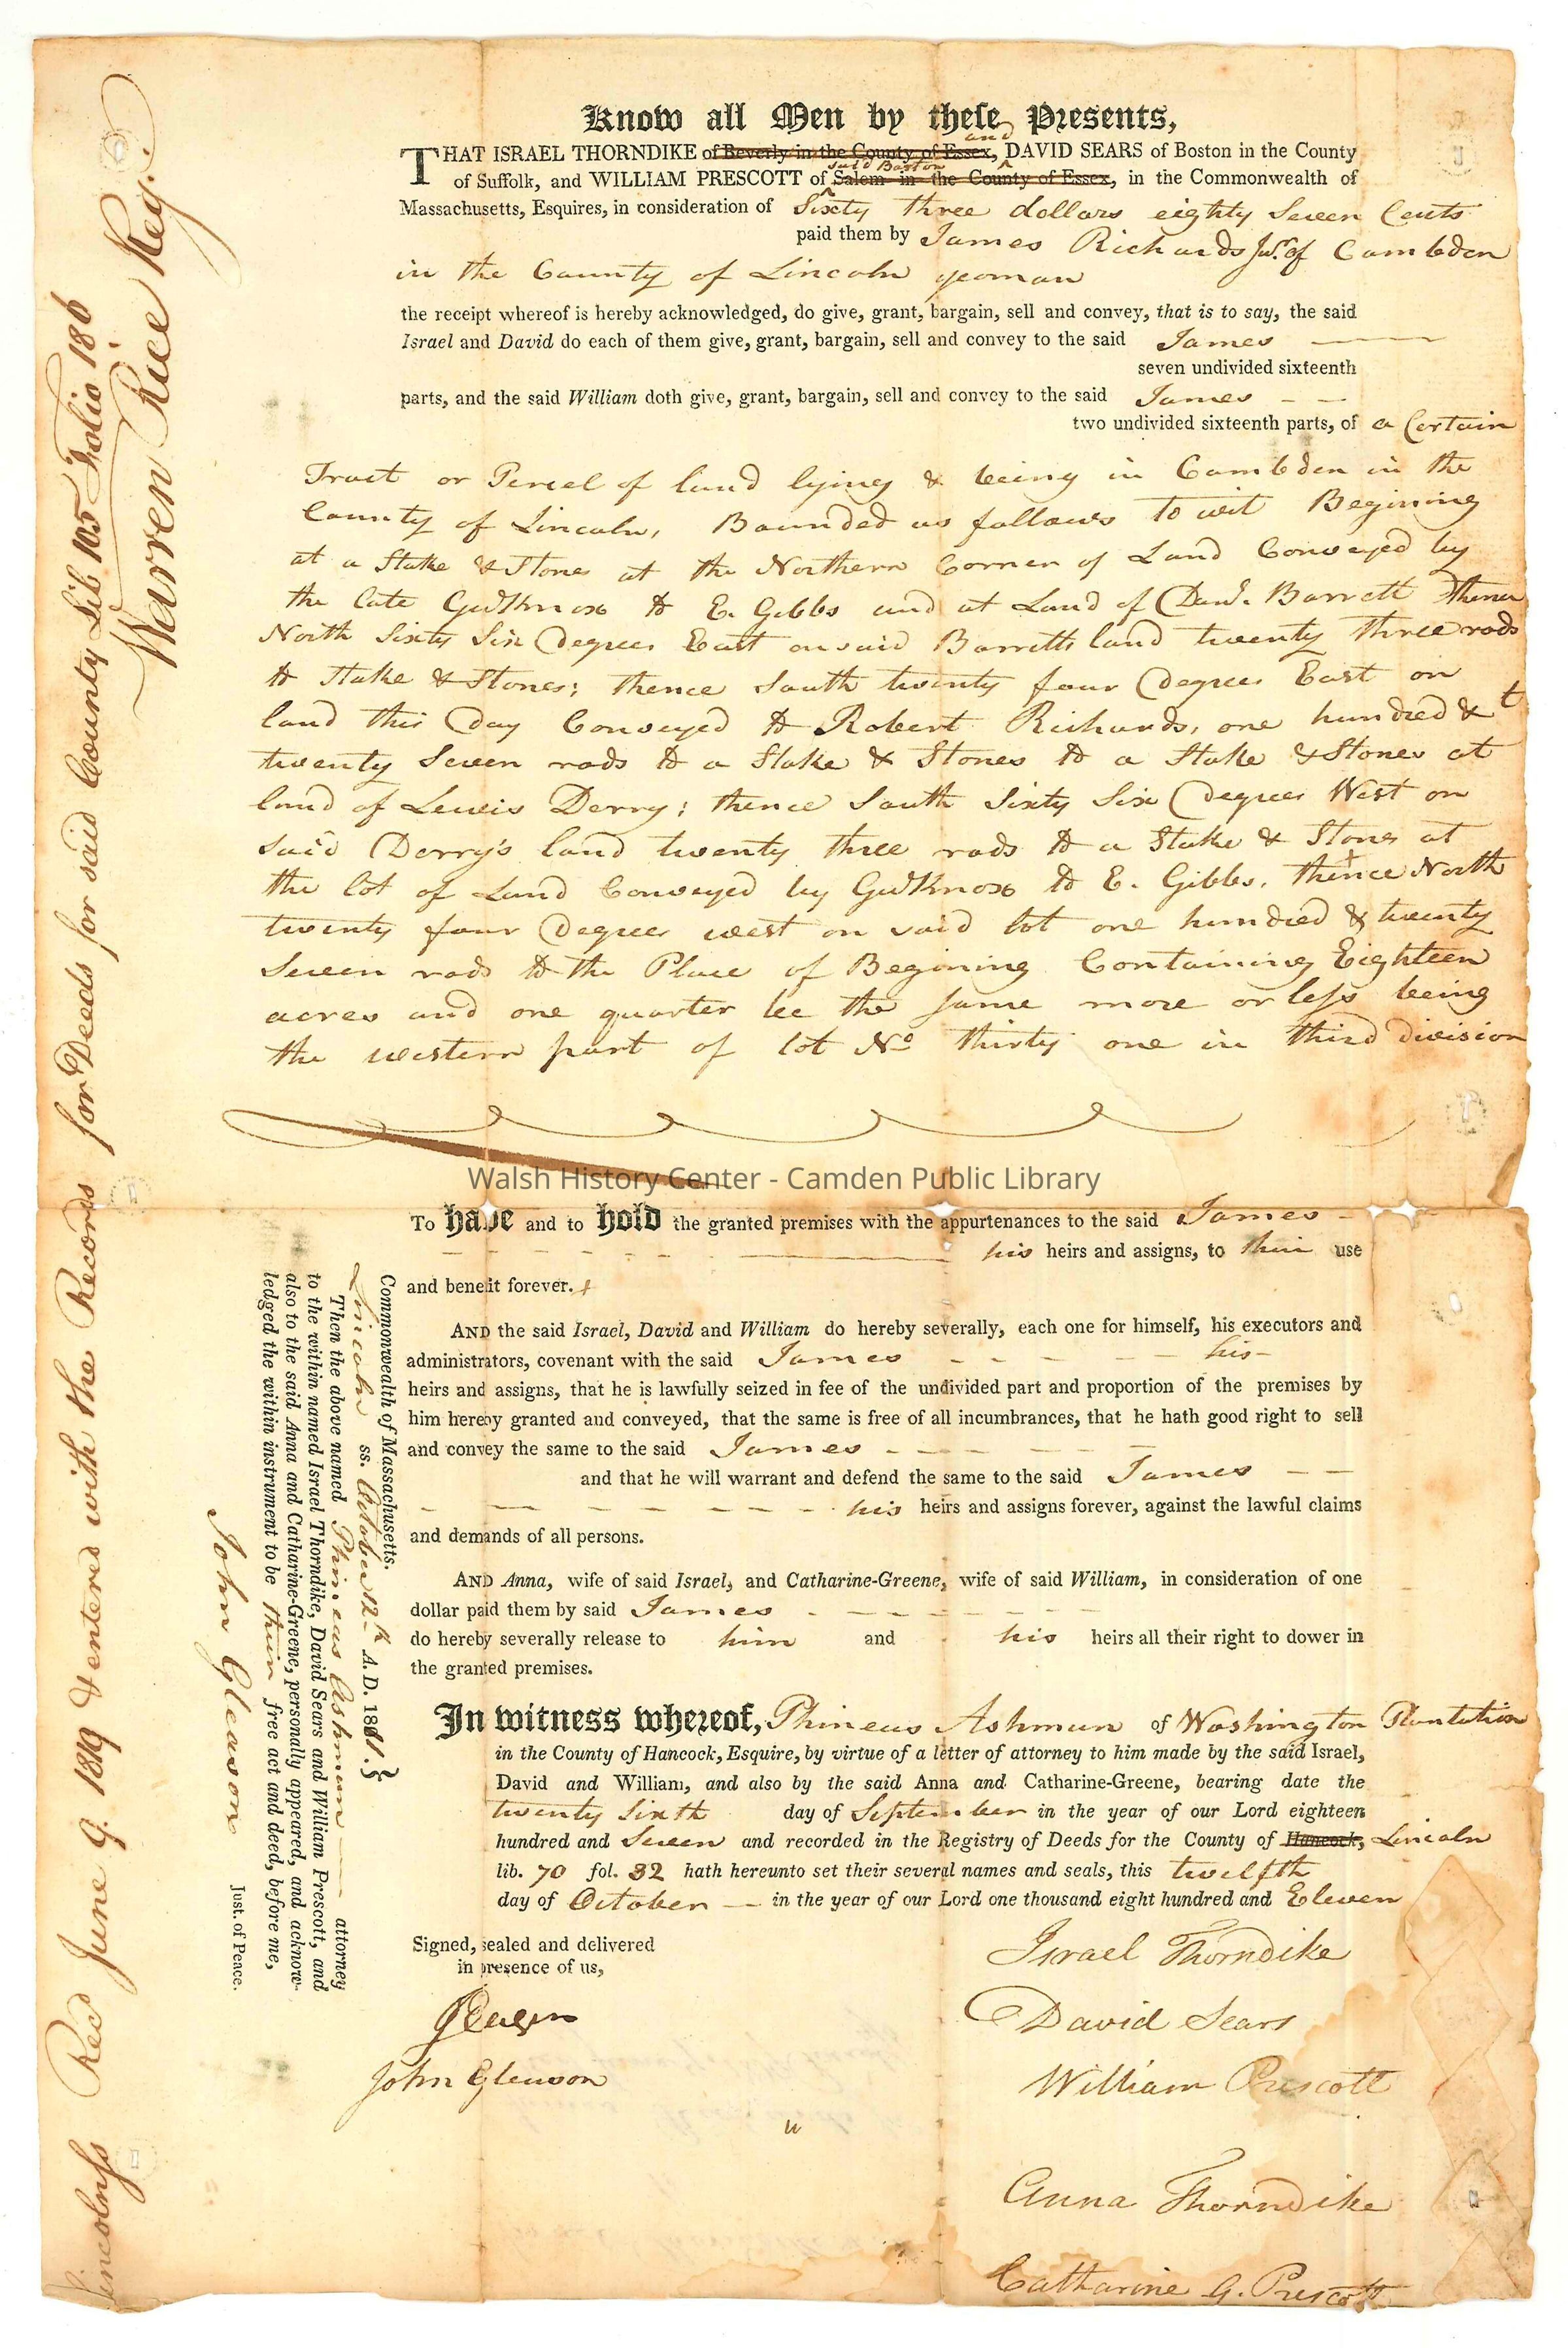 Know all Men by theſe Presents,
and
THAT ISRAEL THORNDIKE of Beverly in the County of Essex, DAVID SEARS of Boston in the County
said Boston
of Suffolk, and WILLIAM PRESCOTT of Salem in the County of Essex, in the Commonwealth of
Massachusetts, Esquires, in consideration of Sixty three dollars eighty Seven Cents
paid them by James Richards Junr. of Cambden
in the County of Lincoln yeoman
the receipt whereof is hereby acknowledged, do give, grant, bargain, sell and convey, that is to say, the said
Israel and David do each of them give, grant, bargain, sell and convey to the said James
seven undivided sixteenth
parts, and the said William doth give, grant, bargain, sell and convey to the said James
two undivided sixteenth parts, of a Certain
Tract or Percel of land lying & being in Cambden in the
County of Lincoln, Bounded as follows To wit Begining
at a Stake & Stones at the Northern Corner of Land Conveyed by
the late Genl Knox to E. Gibbs and at Land of Danl. Barrett thence
North Sixty Six Degrees East on said Barretts land twenty three rods
to Stake & Stones; thence South twenty four Degrees East on
land this Day Conveyed to Robert Richards, one hundred &
twenty Seven rods to a Stake & Stones to a Stake & Stones at
land of Lewis Derry; thence South Sixty Six Degrees West on
said Derry's land twenty three rods to a Stake & Stones at
the lot of Land Conveyed by Genl Knox to E. Gibbs, thence North
twenty four Degrees west on said lot one hundred & twenty
Seven rods to the Place of Begining Containing Eighteen
acres and one quarter be the same more or leſs being
the western part of lot No thirty one in third division
Walsh History Center - Camden Public Library
To have and to hold the granted premises with the appurtenances to the said James
his heirs and assigns, to their use
and benefit forever.
AND the said Israel, David and William do hereby severally, each one for himself, his executors and
administrators, covenant with the said James his
heirs and assigns, that he is lawfully seized in fee of the undivided part and proportion of the premises by
him hereby granted and conveyed, that the same is free of all incumbrances, that he hath good right to sell
and convey the same to the said James
and that he will warrant and defend the same to the said James
his heirs and assigns forever, against the lawful claims
and demands of all persons.
AND Anna, wife of said Israel, and Catharine-Greene, wife of said William, in consideration of one
dollar paid them by said James
do hereby severally release to him and his heirs all their right to dower in
the granted premises.
In witness whereof, Phineas Ashmun of Washington Plantation
in the County of Hancock, Esquire, by virtue of a letter of attorney to him made by the said Israel,
David and William, and also by the said Anna and Catharine-Greene, bearing date the
twenty Sixth day of September in the year of our Lord eighteen
hundred and Seven and recorded in the Registry of Deeds for the County of Hancock, Lincoln
lib. 70 fol. 32 hath hereunto set their several names and seals, this twelfth
day of October in the year of our Lord one thousand eight hundred and Eleven
Signed, sealed and delivered
in presence of us,
John Gleason
Israel Thorndike
David Sears
William Prescott
Anna Thorndike
Catharine G. Prescott
Commonwealth of Massachusetts.
Lincoln ss. October 12th A.D. 1811. }
Then the above named Phineas Ashmun attorney
to the within named Israel Thorndike, David Sears and William Prescott, and
also to the said Anna and Catharine-Greene, personally appeared, and acknow-
ledged the within instrument to be their free act and deed, before me,
John Gleason Just. of Peace.
Lincolnſs Recd June 9. 1819 & entered with the Records for Deeds for said County Lib 105 Folio 186
Warren Rice Reg.